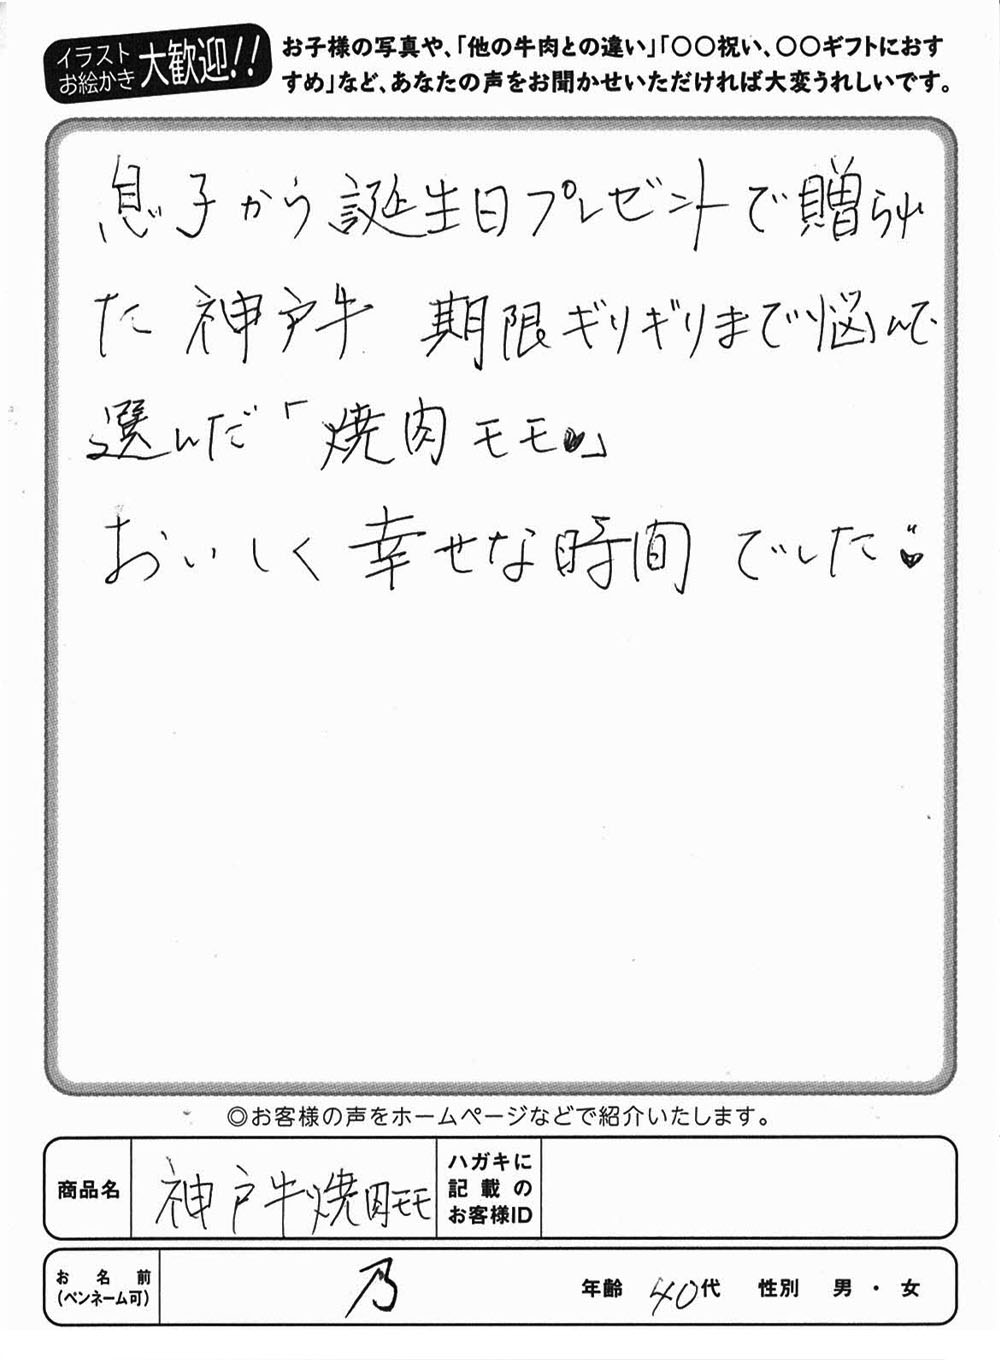 イラスト
お絵かき
大歓迎!!
お子様の写真や、「他の牛肉との違い」「〇〇祝い、〇〇ギフトにおす
すめ」など、あなたの声をお聞かせいただければ大変うれしいです。
息子から誕生日プレゼントで贈られ
た 神戸牛 期限ギリギリまで悩んで
選んだ「焼肉モモ♥」
おいしく幸せな時間でした♥
◎お客様の声をホームページなどで紹介いたします。
商品名 神戸牛焼肉モモ
ハガキに
記載の
お客様ID
お名前
(ペンネーム可)
乃
年齢 40代 性別 男・女